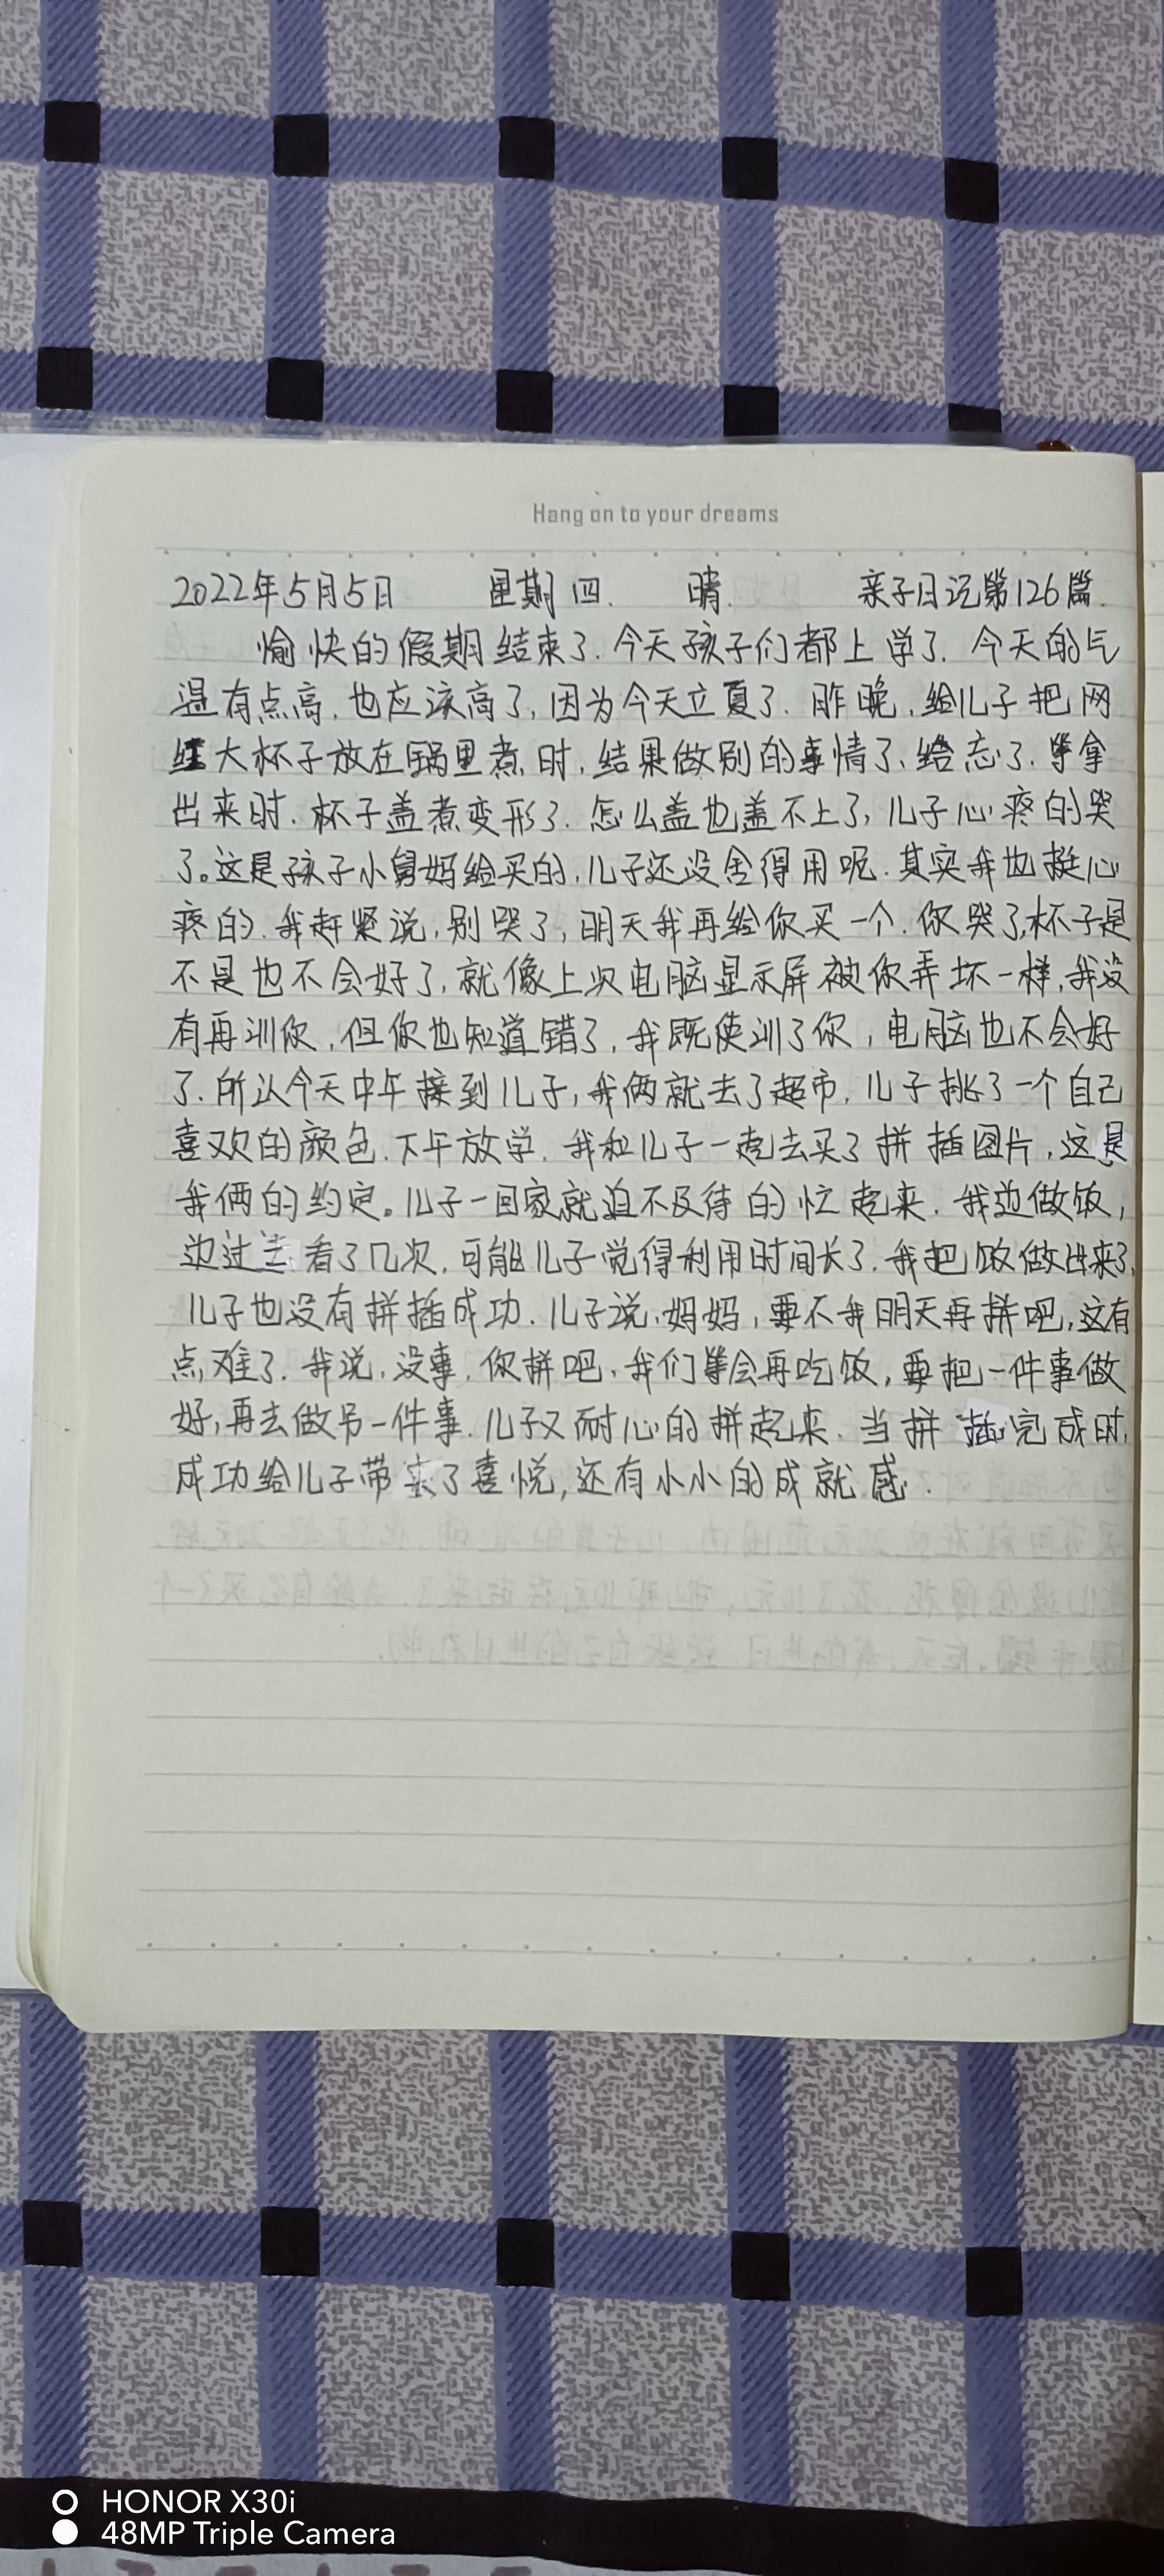 Hang on to your dreams
2022年5月5日 星期四. 晴. 亲子日记第126篇.
愉快的假期结束了.今天孩子们都上学了.今天的气
温有点高,也应该高了,因为今天立夏了.昨晚,给儿子把网
红大杯子放在锅里煮时,结果做别的事情了,给忘了.等拿
出来时.杯子盖煮变形了.怎么盖也盖不上了,儿子心疼的哭
了。这是孩子小舅妈给买的,儿子还没舍得用呢.其实我也挺心
疼的.我赶紧说,别哭了,明天我再给你买一个.你哭了,杯子是
不是也不会好了,就像上次电脑显示屏被你弄坏一样,我没
有再训你,但你也知道错了,我既使训了你,电脑也不会好
了.所以今天中午接到儿子,我俩就去了超市.儿子挑了一个自己
喜欢的颜色.下午放学.我和儿子一起去买了拼插图片,这是
我俩的约定。儿子一回家就迫不及待的忙起来.我边做饭,
边过去看了几次,可能儿子觉得利用时间长了.我把饭做出来了,
儿子也没有拼插成功.儿子说,妈妈,要不我明天再拼吧,这有
点难了.我说,没事,你拼吧,我们等会再吃饭,要把一件事做
好,再去做另一件事.儿子又耐心的拼起来.当拼插完成时,
成功给儿子带来了喜悦,还有小小的成就感.
HONOR X30i
48MP Triple Camera